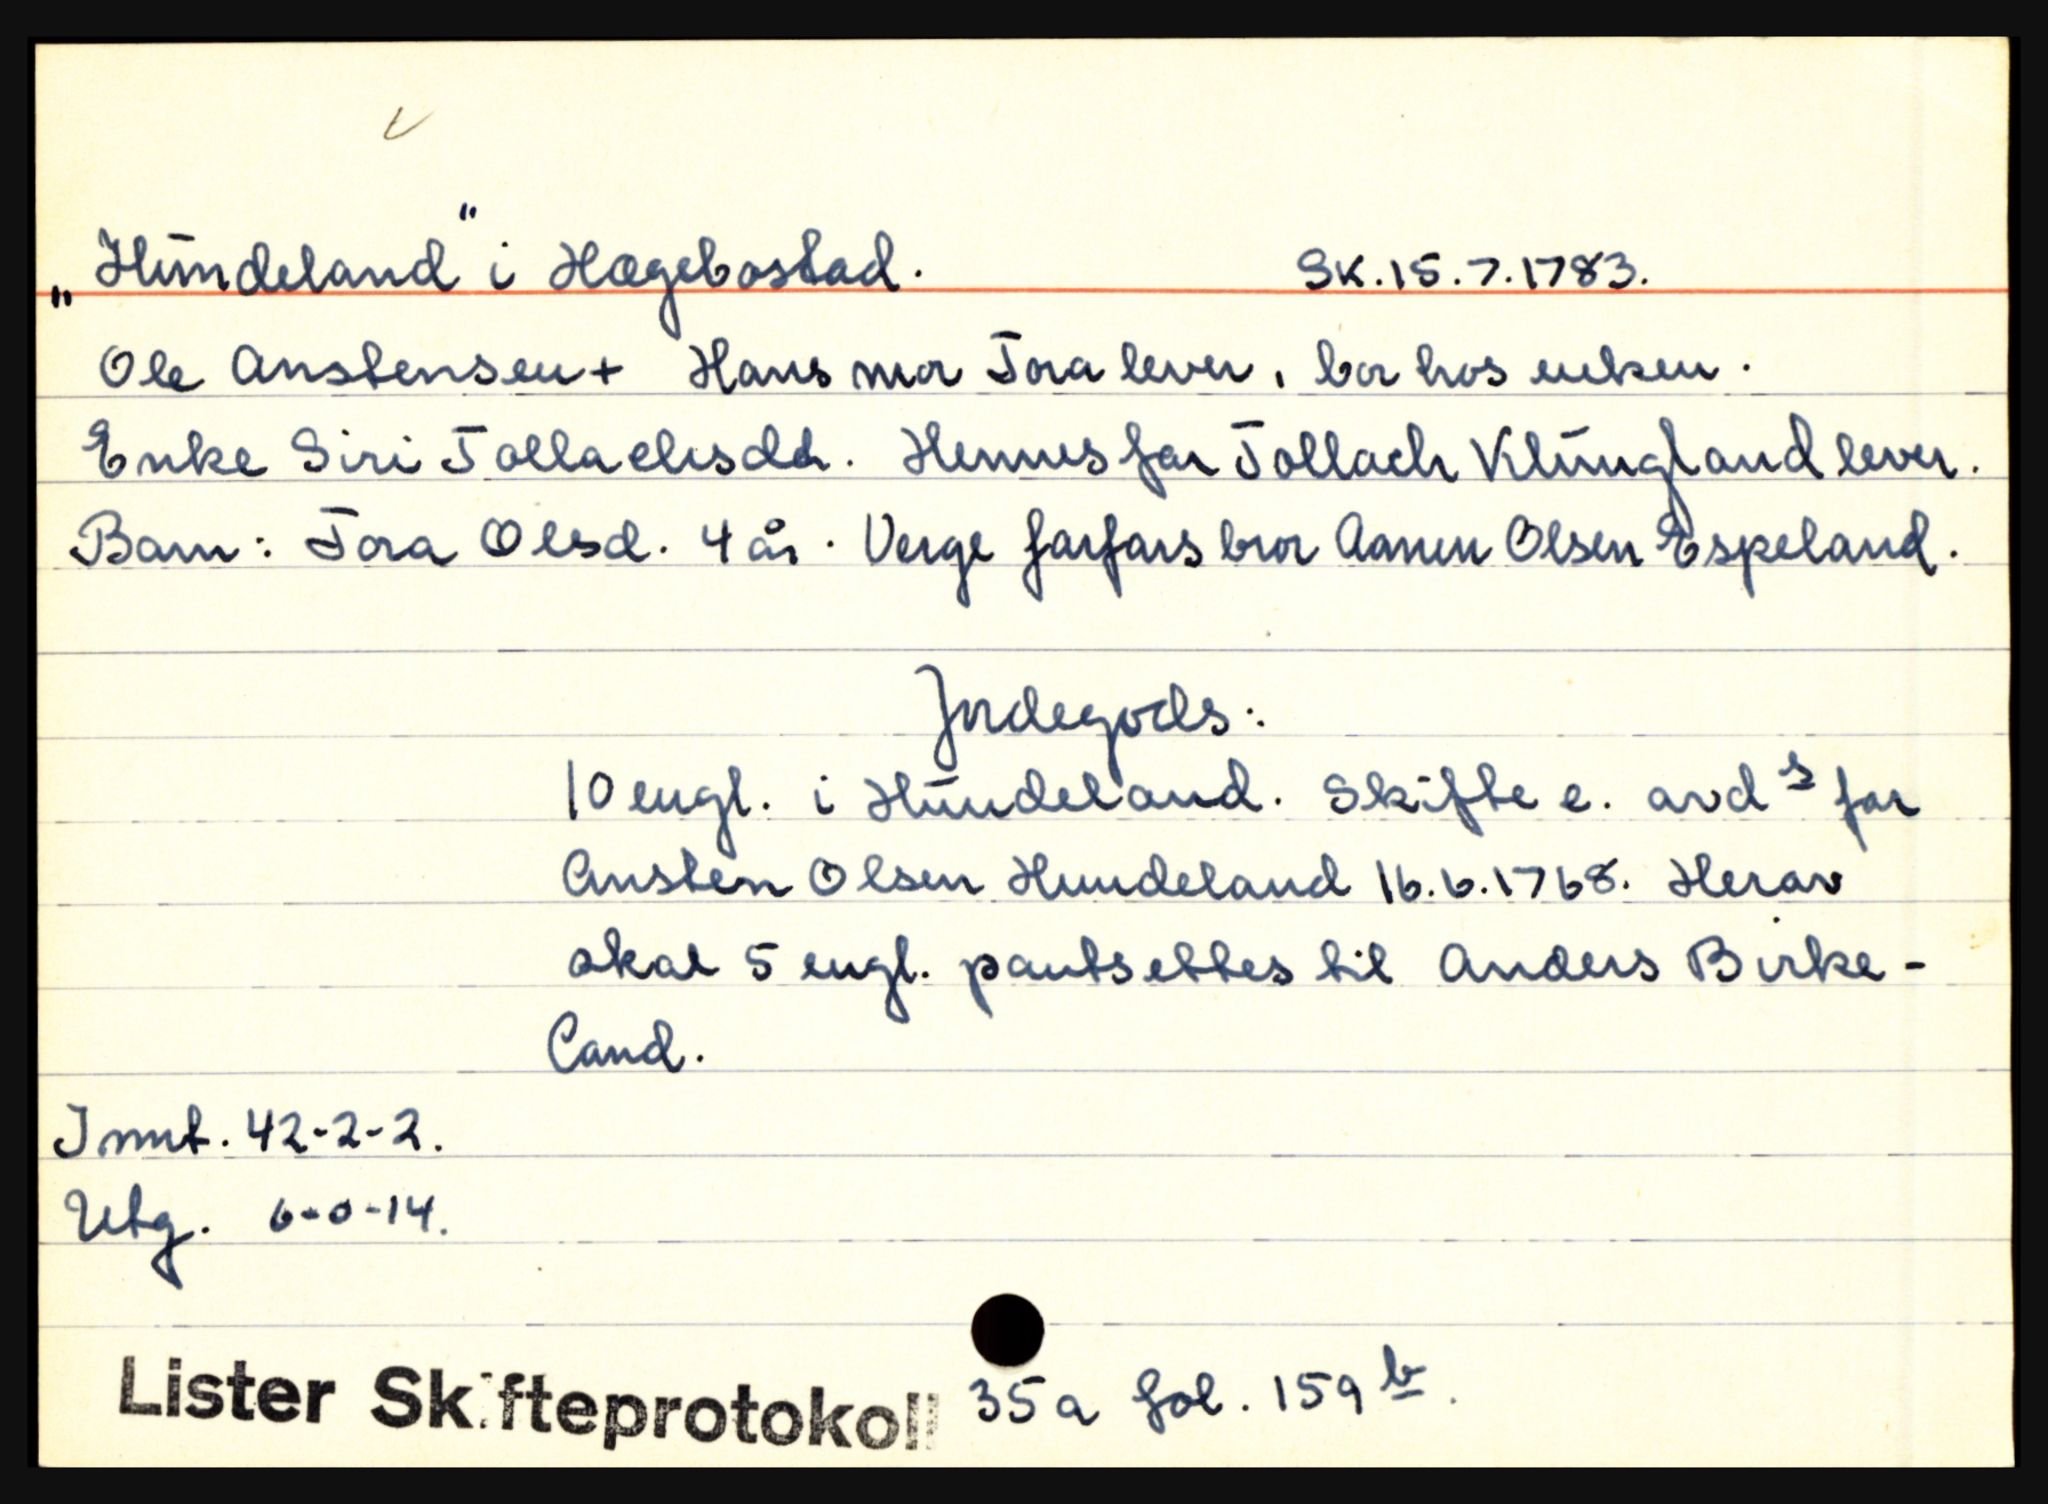 „Hundeland" i Hægebostad. Sk. 15.7.1783.
Ole Anstensen + Hans mor Tora lever, bor hos enken.
Enke Siri Tollachsdt. Hennes far Tollach Klungland lever.
Barn: Tora Olsd. 4 år. Verge farfars bror Aanen Olsen Espeland.
Jordegods:
10 engl. i Hundeland. Skifte e. avds far
Ansten Olsen Hundeland 16.6.1768. Herav
skal 5 engl. pantsettes til Anders Birke-
land.
Innt. 42-2-2.
Utg. 6-0-14.
Lister Skifteprotokoll 35a fol. 159b.